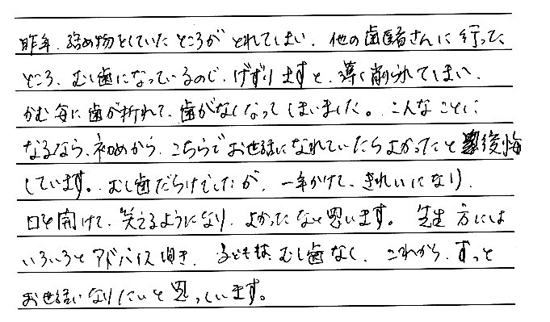 昨年、詰め物をしていたところがとれてしまい、他の歯医者さんに行った
ところ、むし歯になっているので、けずりますと、薄く削られてしまい、
かむ毎に歯が折れて、歯がなくなってしまいました。こんなことに
なるなら、初めから、こちらでお世話になれていたらよかったと後悔
しています。むし歯だらけでしたが、一年かけて、きれいになり、
口を開けて、笑えるようになり、よかったなと思います。先生方には
いろいろとアドバイス頂き、子どもは、むし歯なく、これから、ずっと
お世話になりたいと思っています。